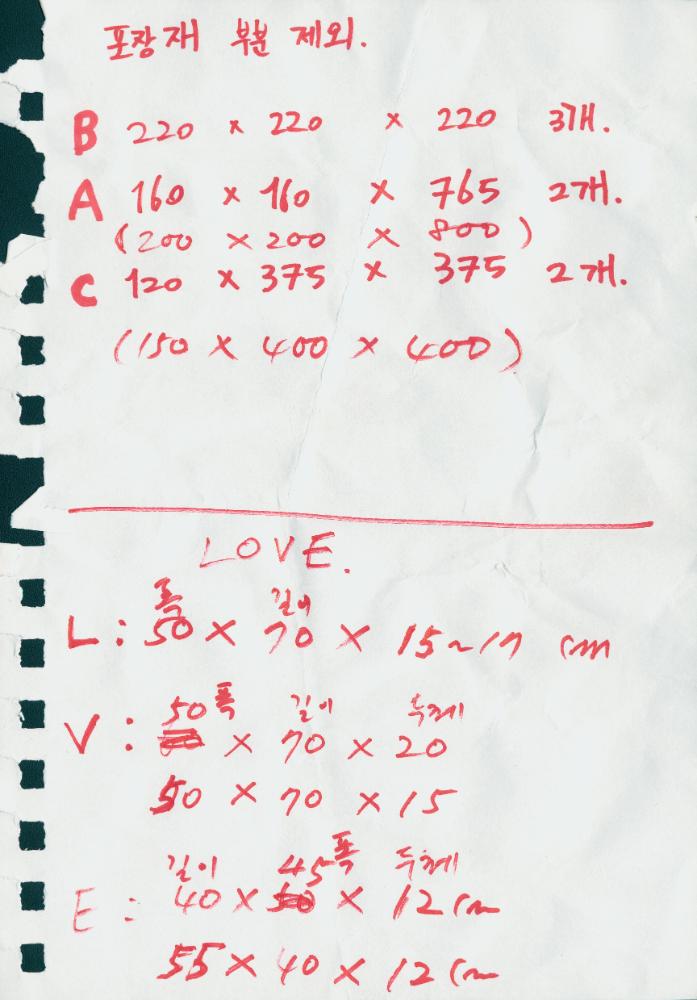 포장재 부분 제외.
B 220 x 220 x 220 3개.
A 160 x 160 x 765 2개.
(200 x 200 x 800)
C 120 x 375 x 375 2개.
(150 x 400 x 400)
LOVE.
폭 길이
L: 50 x 70 x 15~17 cm
50폭 길이 두께
V: x 70 x 20
50 x 70 x 15
길이 45폭 두께
E: 40 x x 12cm
55 x 40 x 12cm